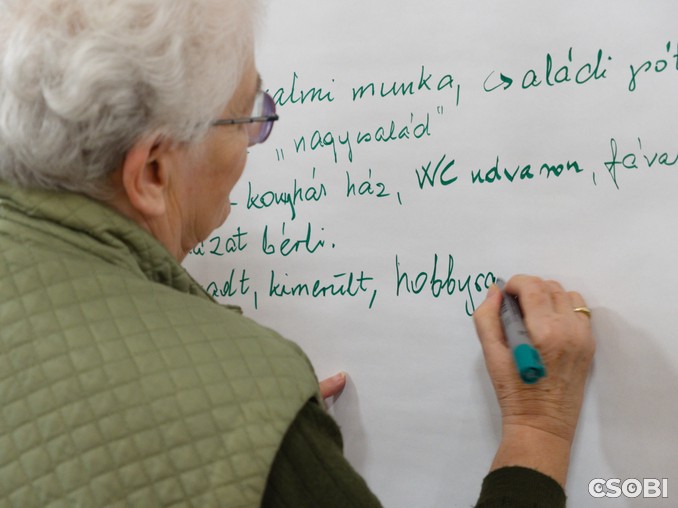 almi munka, családi pót
„nagycsalád"
- konyhás ház, WC udvaron, fáva
ázat bérli.
adt, kimerült, hobbyra
CSOBI